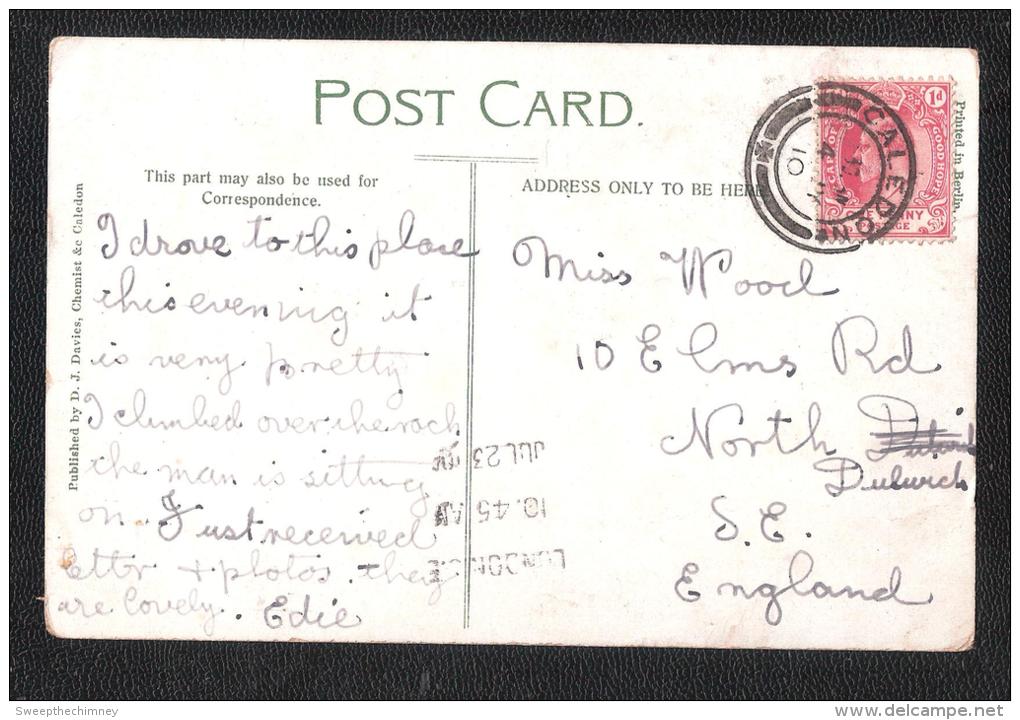 POST CARD.
This part may also be used for
Correspondence.
ADDRESS ONLY TO BE HERE
Published by D. J. Davies, Chemist &c Caledon
Printed in Berlin.
CAPE OF GOOD HOPE
1d
PENNY
POSTAGE
CALEDON
10
I drove to this place
this evening it
is very pretty
I climbed over the rock
the man is sitting
on. I just received
letter + photos. they
are lovely. Edie
Miss Wood
10 Elms Rd
North
Dulwich
S.E.
England
LONDON. S.E
10.45 AM
JUL 23
Sweepthechimney
delcampe.net